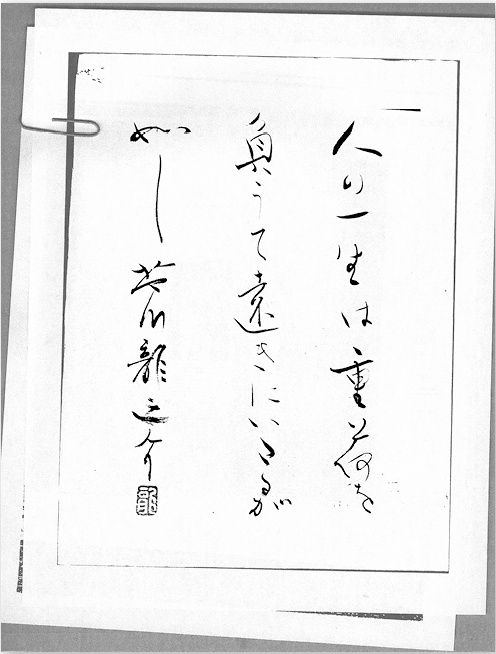 人の一生は重荷を
負うて遠きにいたるが
如し 芥川龍之介